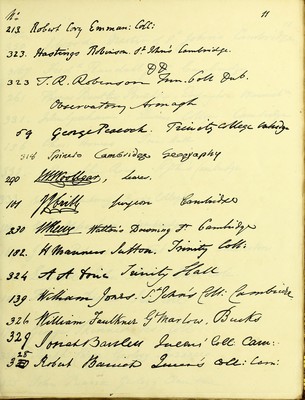 No. 11
213. Robert Cory Emman: Coll:
323. Hastings Robinson. St John's Cambridge.
323 T. R. Robinson DD Trin. Coll Dub.
Observatory Armagh
59 George Peacock. Trinity College Cambridge
318 Cambridge Geography
290 Lewes.
101 Surgeon Cambridge
230 Downing St Cambridge
182. H Manners Sutton. Trinity Coll:
324 Trinity Hall
139. William Jones. St John's Coll: Cambridge
326 William Faulkner Gt Marlow. Bucks
329 Queens' Coll Cam:
328 Queen's Coll: Cam: